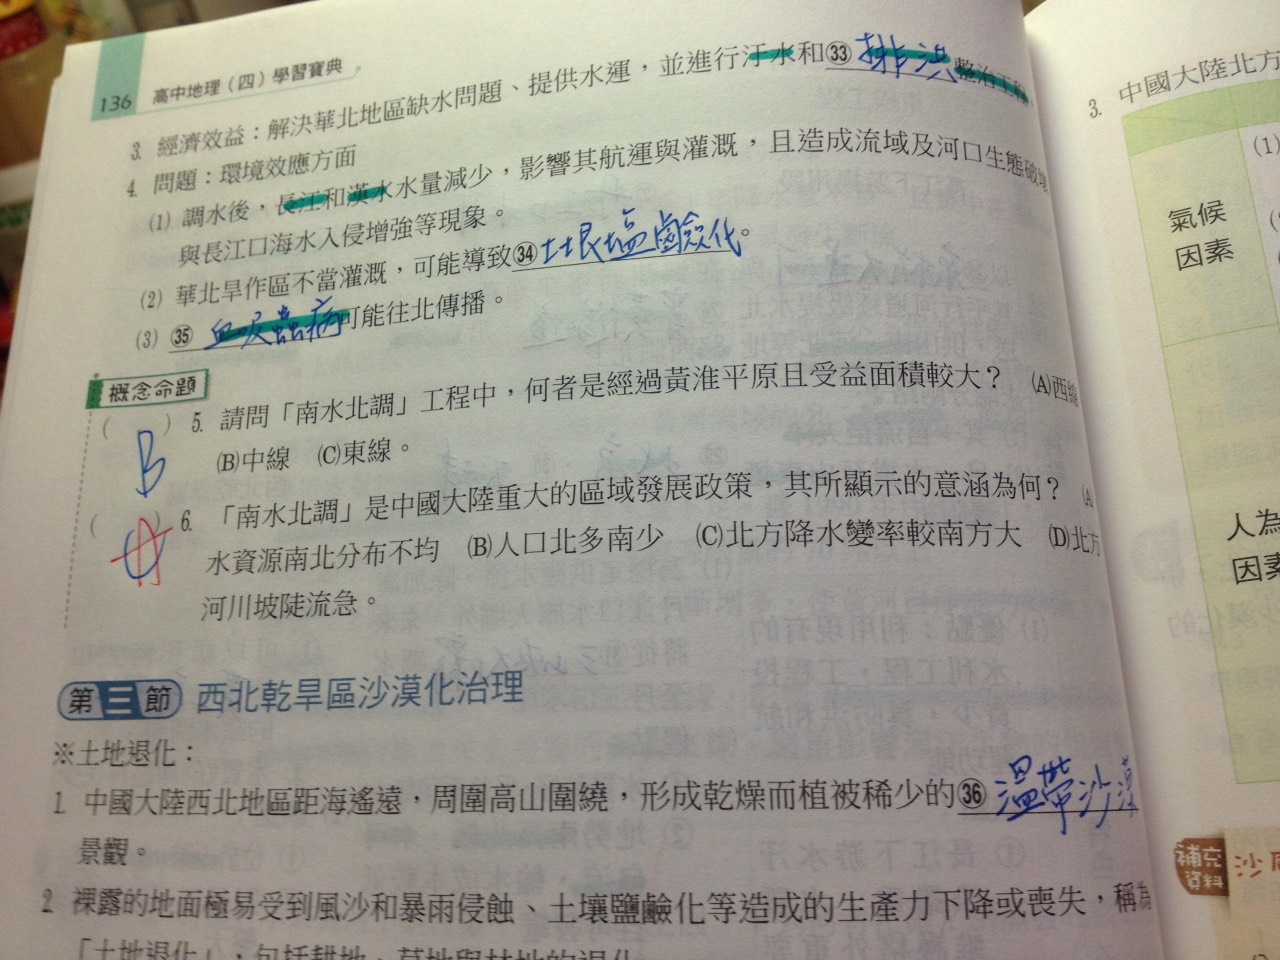 136 高中地理（四）學習寶典
3. 經濟效益：解決華北地區缺水問題、提供水運，並進行汙水和㉝排洪整治工程
4. 問題：環境效應方面
(1) 調水後，長江和漢水水量減少，影響其航運與灌溉，且造成流域及河口生態破壞
與長江口海水入侵增強等現象。
(2) 華北旱作區不當灌溉，可能導致㉞土壤塩鹼化。
(3) ㉟血吸蟲病可能往北傳播。
概念命題
( B ) 5. 請問「南水北調」工程中，何者是經過黃淮平原且受益面積較大？ (A)西線
(B)中線 (C)東線。
( A ) 6. 「南水北調」是中國大陸重大的區域發展政策，其所顯示的意涵為何？ (A
水資源南北分布不均 (B)人口北多南少 (C)北方降水變率較南方大 (D)北方
河川坡陡流急。
第三節 西北乾旱區沙漠化治理
※土地退化：
1. 中國大陸西北地區距海遙遠，周圍高山圍繞，形成乾燥而植被稀少的㊱溫帶沙漠
景觀。
2. 裸露的地面極易受到風沙和暴雨侵蝕、土壤鹽鹼化等造成的生產力下降或喪失，稱為
「土地退化」，包括耕地、草地與林地的退化
3. 中國大陸北方
(1)
氣候
因素
人為
因素
補充
資料
沙